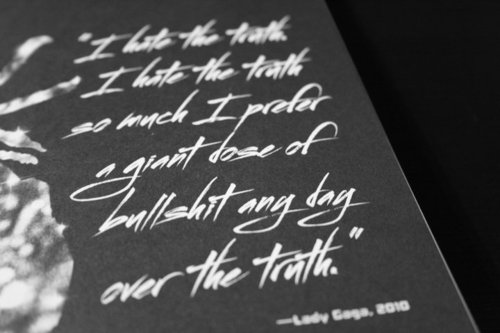 "I hate the truth.
I hate the truth
so much I prefer
a giant dose of
bullshit any day
over the truth."
—Lady Gaga, 2010